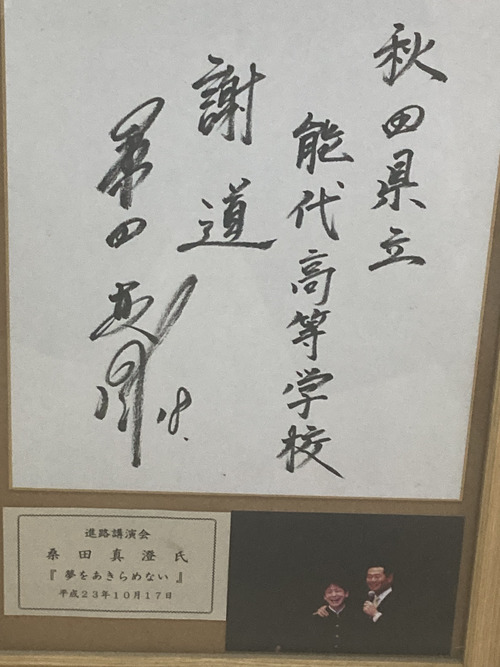 秋田県立
能代高等学校
謝道
桑田真澄
18.
進路講演会
桑田真澄氏
『夢をあきらめない』
平成23年10月17日